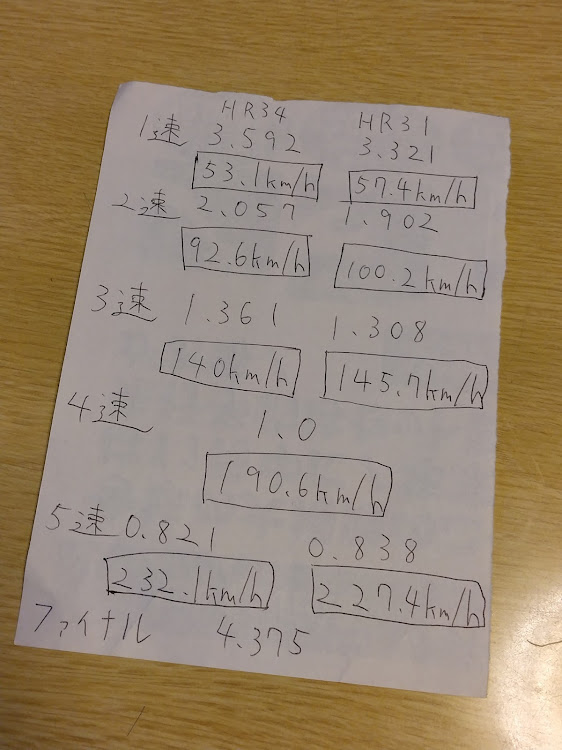 HR34 HR31
1速 3.592 3.321
53.1km/h 57.4km/h
2速 2.057 1.902
92.6km/h 100.2km/h
3速 1.361 1.308
140km/h 145.7km/h
4速 1.0
190.6km/h
5速 0.821 0.838
232.1km/h 227.4km/h
ファイナル 4.375